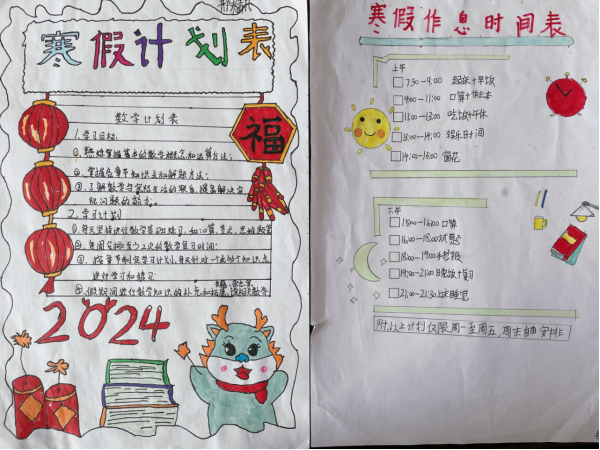 寒假计划表
福
数学计划表
1.学习目标:
①.熟练掌握基本的数学概念和运算方法;
②.掌握各章节知识点和解题方法;
③.了解数学与实际生活的联系,提高解决实
际问题的能力。
2.学习计划
②.每周安排至少2次的数学复习时间;
③.按章节制定学习计划,每天针对一个或多个知识点
进行学习和练习
④.假期间进行数学知识的补充和拓展,
2024
寒假作息时间表
上午
7:30-9:00 起床+早饭
9:00-11:00 口算+作业本
11:00-13:00 吃饭+午休
13:00-14:00 娱乐时间
14:00-15:00 窗花
下午
15:00-16:00 口算
16:00-18:00 试卷
18:00-19:00 手抄报
19:00-21:00 晚饭+复习
21:00-21:30 上床睡觉
附:以上计划仅限周一至周五,周末自由安排